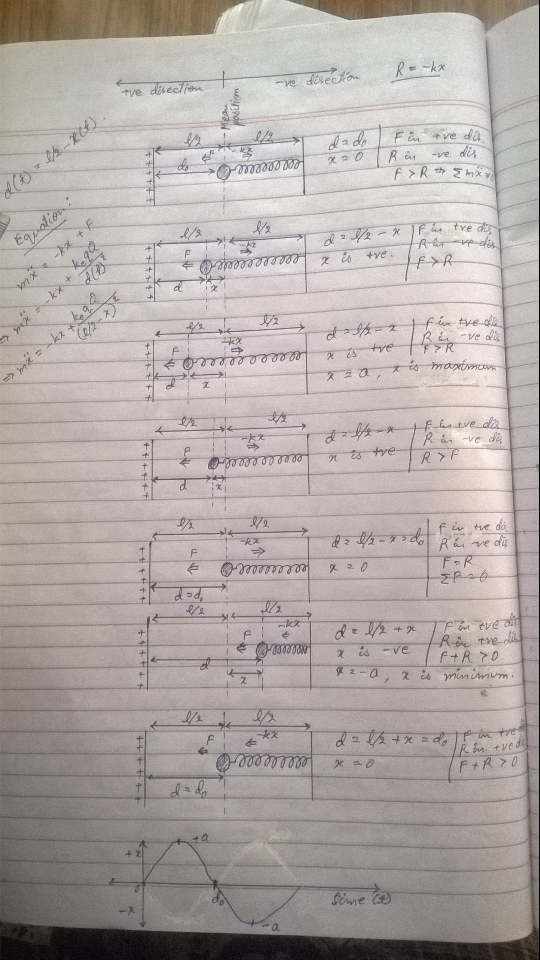 +ve direction
-ve direction
R = -kx
Mean position
d(t) = l/2 - x(t).
Equation:
mẍ = -kx + F
⇒ mẍ = -kx + keqQ/d(t)²
⇒ mẍ = -kx + keqQ/(l/2-x)²
l/2 l/2
d₀ F -kx
d = d₀ F in +ve dir
x = 0 R in -ve dir
F > R ⇒
l/2 l/2
F -kx
d x
d = l/2 - x F in +ve dir
x is +ve. R in -ve dir
F > R
l/2 l/2
F -kx
d x
d = l/2 - x F in +ve dir
x is +ve R in -ve dir
F > R
x = a, x is maximum
l/2 l/2
F -kx
d x
d = l/2 - x F in +ve dir
x is +ve R in -ve dir
R > F
l/2 l/2
F -kx
d = d₀
d = l/2 - x = d₀ F in +ve dir
x = 0 R in -ve dir
F = R
ΣF = 0
l/2 l/2
F -kx
d
x
d = l/2 + x F in +ve dir
x is -ve R in +ve dir
F + R > 0
x = -a, x is minimum.
l/2 l/2
F -kx
d = d₀
d = l/2 + x = d₀ F in +ve dir
x = 0 R in +ve dir
F + R > 0
+a
+x
0 d₀ time (t)
-x
-a